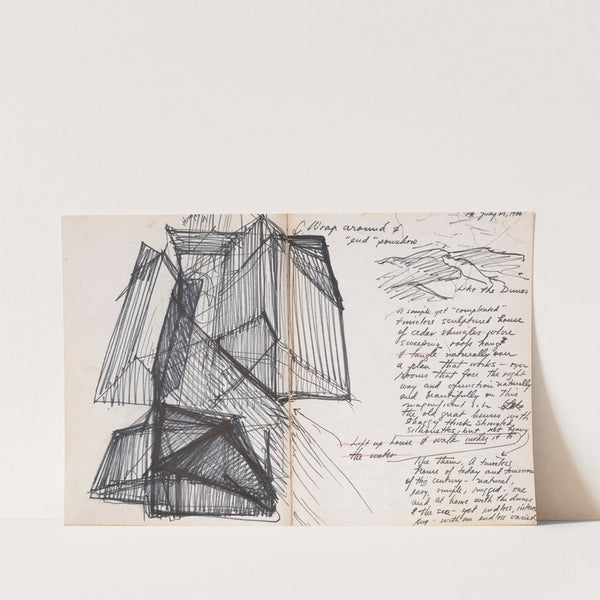 July 25, 1986
Wrap around &
"end" somehow
Like the Dunes
A simple yet "complicated"
timeless sculptured house
of cedar shingles where
sweeping roofs hang
& naturally over
a plan that works – over
rooms that face the right
way and function naturally
and beautifully on this
magnificent
the old great houses with
shaggy thick shingled
silhouettes, but not heavy
Lift up house & walk under it to
the water
like them. A timeless
house of today and tomorrow
of this century – natural,
easy, simple, rugged – one
and at home with the dunes
& the sea – yet endless,
ing – with an endless